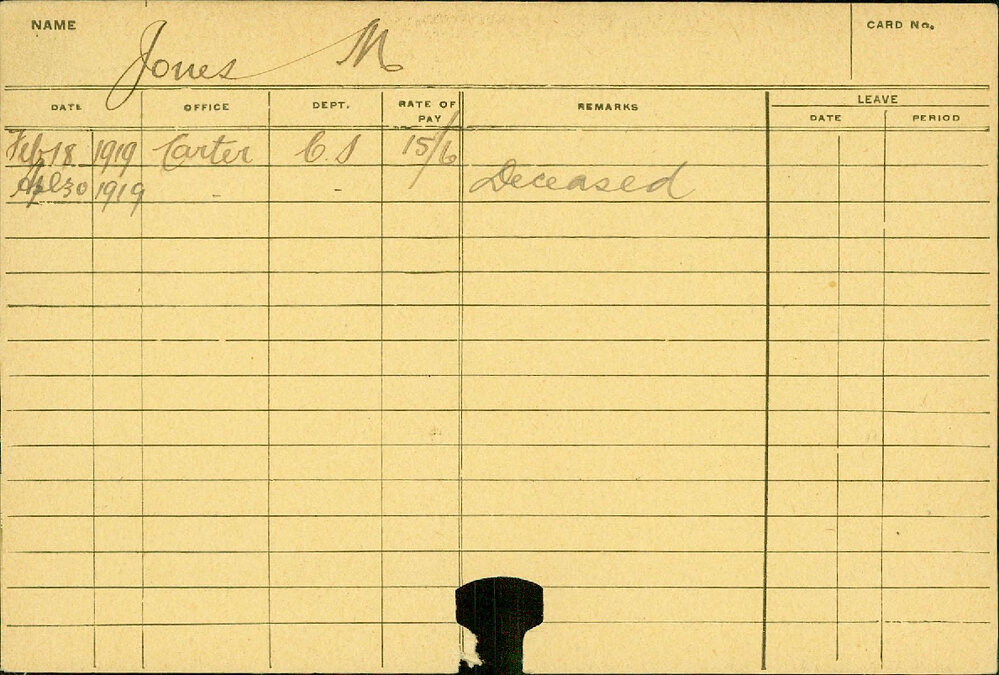 NAME Jones M CARD No.
DATE OFFICE DEPT. RATE OF PAY REMARKS LEAVE
DATE PERIOD
Feb 18 1919 Carter C.S 15/6
Apl 30 1919 - - Deceased